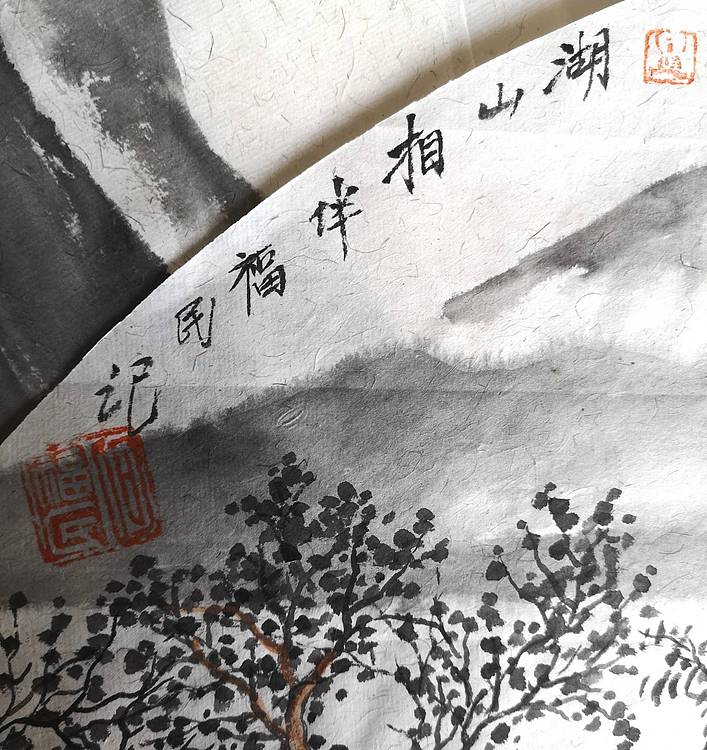 湖山相伴福民记